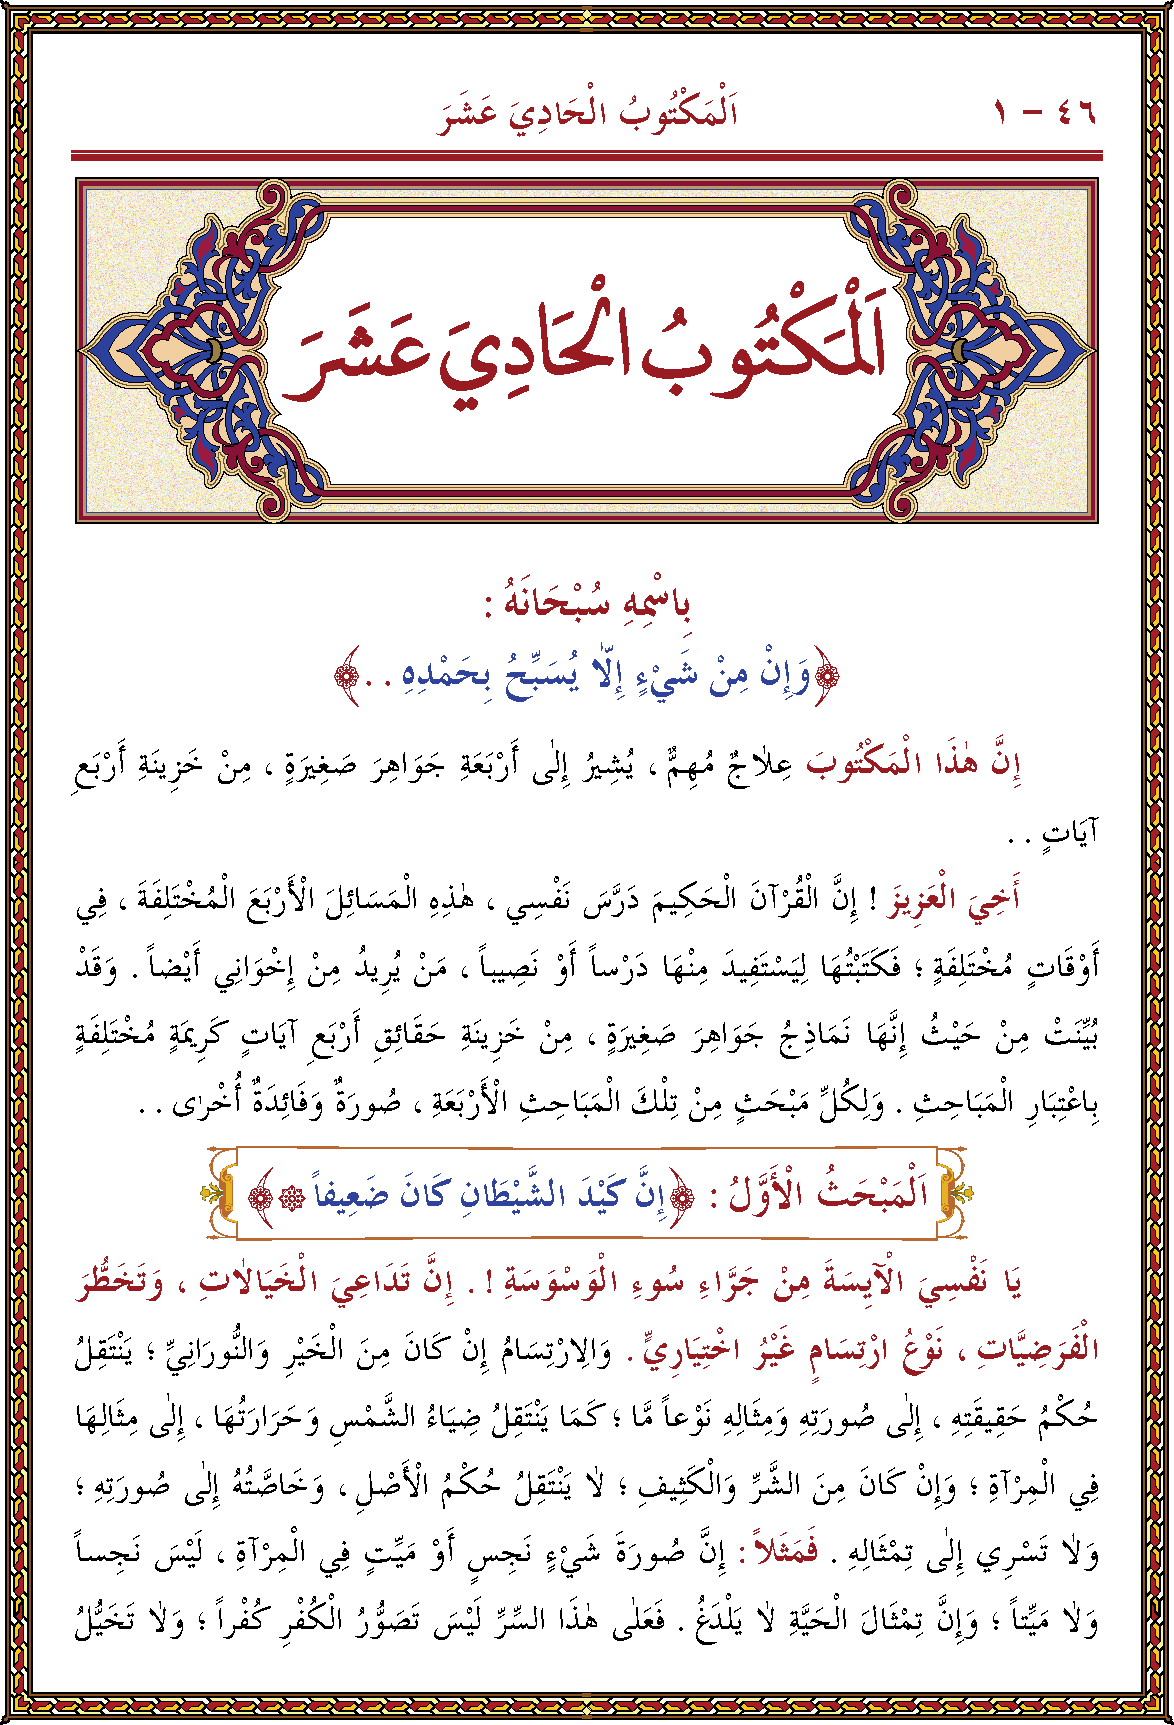 ٤٦ - ١
اَلْمَكْتُوبُ الْحَادِيَ عَشَرَ
اَلْمَكْتُوبُ الْحَادِيَ عَشَرَ
بِاسْمِهِ سُبْحَانَهُ :
﴿وَإِنْ مِنْ شَيْءٍ إِلَّا يُسَبِّحُ بِحَمْدِهِ . .﴾
إِنَّ هٰذَا الْمَكْتُوبَ عِلَاجٌ مُهِمٌّ ، يُشِيرُ إِلٰى أَرْبَعَةِ جَوَاهِرَ صَغِيرَةٍ ، مِنْ خَزِينَةِ أَرْبَعِ
آيَاتٍ . .
أَخِيَ الْعَزِيزَ ! إِنَّ الْقُرْآنَ الْحَكِيمَ دَرَّسَ نَفْسِي ، هٰذِهِ الْمَسَائِلَ الْأَرْبَعَ الْمُخْتَلِفَةَ ، فِي
أَوْقَاتٍ مُخْتَلِفَةٍ ؛ فَكَتَبْتُهَا لِيَسْتَفِيدَ مِنْهَا دَرْساً أَوْ نَصِيباً ، مَنْ يُرِيدُ مِنْ إِخْوَانِي أَيْضاً . وَقَدْ
بُيِّنَتْ مِنْ حَيْثُ إِنَّهَا نَمَاذِجُ جَوَاهِرَ صَغِيرَةٍ ، مِنْ خَزِينَةِ حَقَائِقِ أَرْبَعِ آيَاتٍ كَرِيمَةٍ مُخْتَلِفَةٍ
بِاعْتِبَارِ الْمَبَاحِثِ . وَلِكُلِّ مَبْحَثٍ مِنْ تِلْكَ الْمَبَاحِثِ الْأَرْبَعَةِ ، صُورَةٌ وَفَائِدَةٌ أُخْرٰى . .
اَلْمَبْحَثُ الْأَوَّلُ : ﴿إِنَّ كَيْدَ الشَّيْطَانِ كَانَ ضَعِيفاً﴾
يَا نَفْسِيَ الْآيِسَةَ مِنْ جَرَّاءِ سُوءِ الْوَسْوَسَةِ ! . إِنَّ تَدَاعِيَ الْخَيَالَاتِ ، وَتَخَطُّرَ
الْفَرَضِيَّاتِ ، نَوْعُ ارْتِسَامٍ غَيْرُ اخْتِيَارِيٍّ . وَالِارْتِسَامُ إِنْ كَانَ مِنَ الْخَيْرِ وَالنُّورَانِيِّ ؛ يَنْتَقِلُ
حُكْمُ حَقِيقَتِهِ ، إِلٰى صُورَتِهِ وَمِثَالِهِ نَوْعاً مَّا ؛ كَمَا يَنْتَقِلُ ضِيَاءُ الشَّمْسِ وَحَرَارَتُهَا ، إِلٰى مِثَالِهَا
فِي الْمِرْآةِ ؛ وَإِنْ كَانَ مِنَ الشَّرِّ وَالْكَثِيفِ ؛ لَا يَنْتَقِلُ حُكْمُ الْأَصْلِ ، وَخَاصَّتُهُ إِلٰى صُورَتِهِ ؛
وَلَا تَسْرِي إِلٰى تِمْثَالِهِ . فَمَثَلاً : إِنَّ صُورَةَ شَيْءٍ نَجِسٍ أَوْ مَيِّتٍ فِي الْمِرْآةِ ، لَيْسَ نَجِساً
وَلَا مَيِّتاً ؛ وَإِنَّ تِمْثَالَ الْحَيَّةِ لَا يَلْدَغُ . فَعَلٰى هٰذَا السِّرِّ لَيْسَ تَصَوُّرُ الْكُفْرِ كُفْراً ؛ وَلَا تَخَيُّلُ